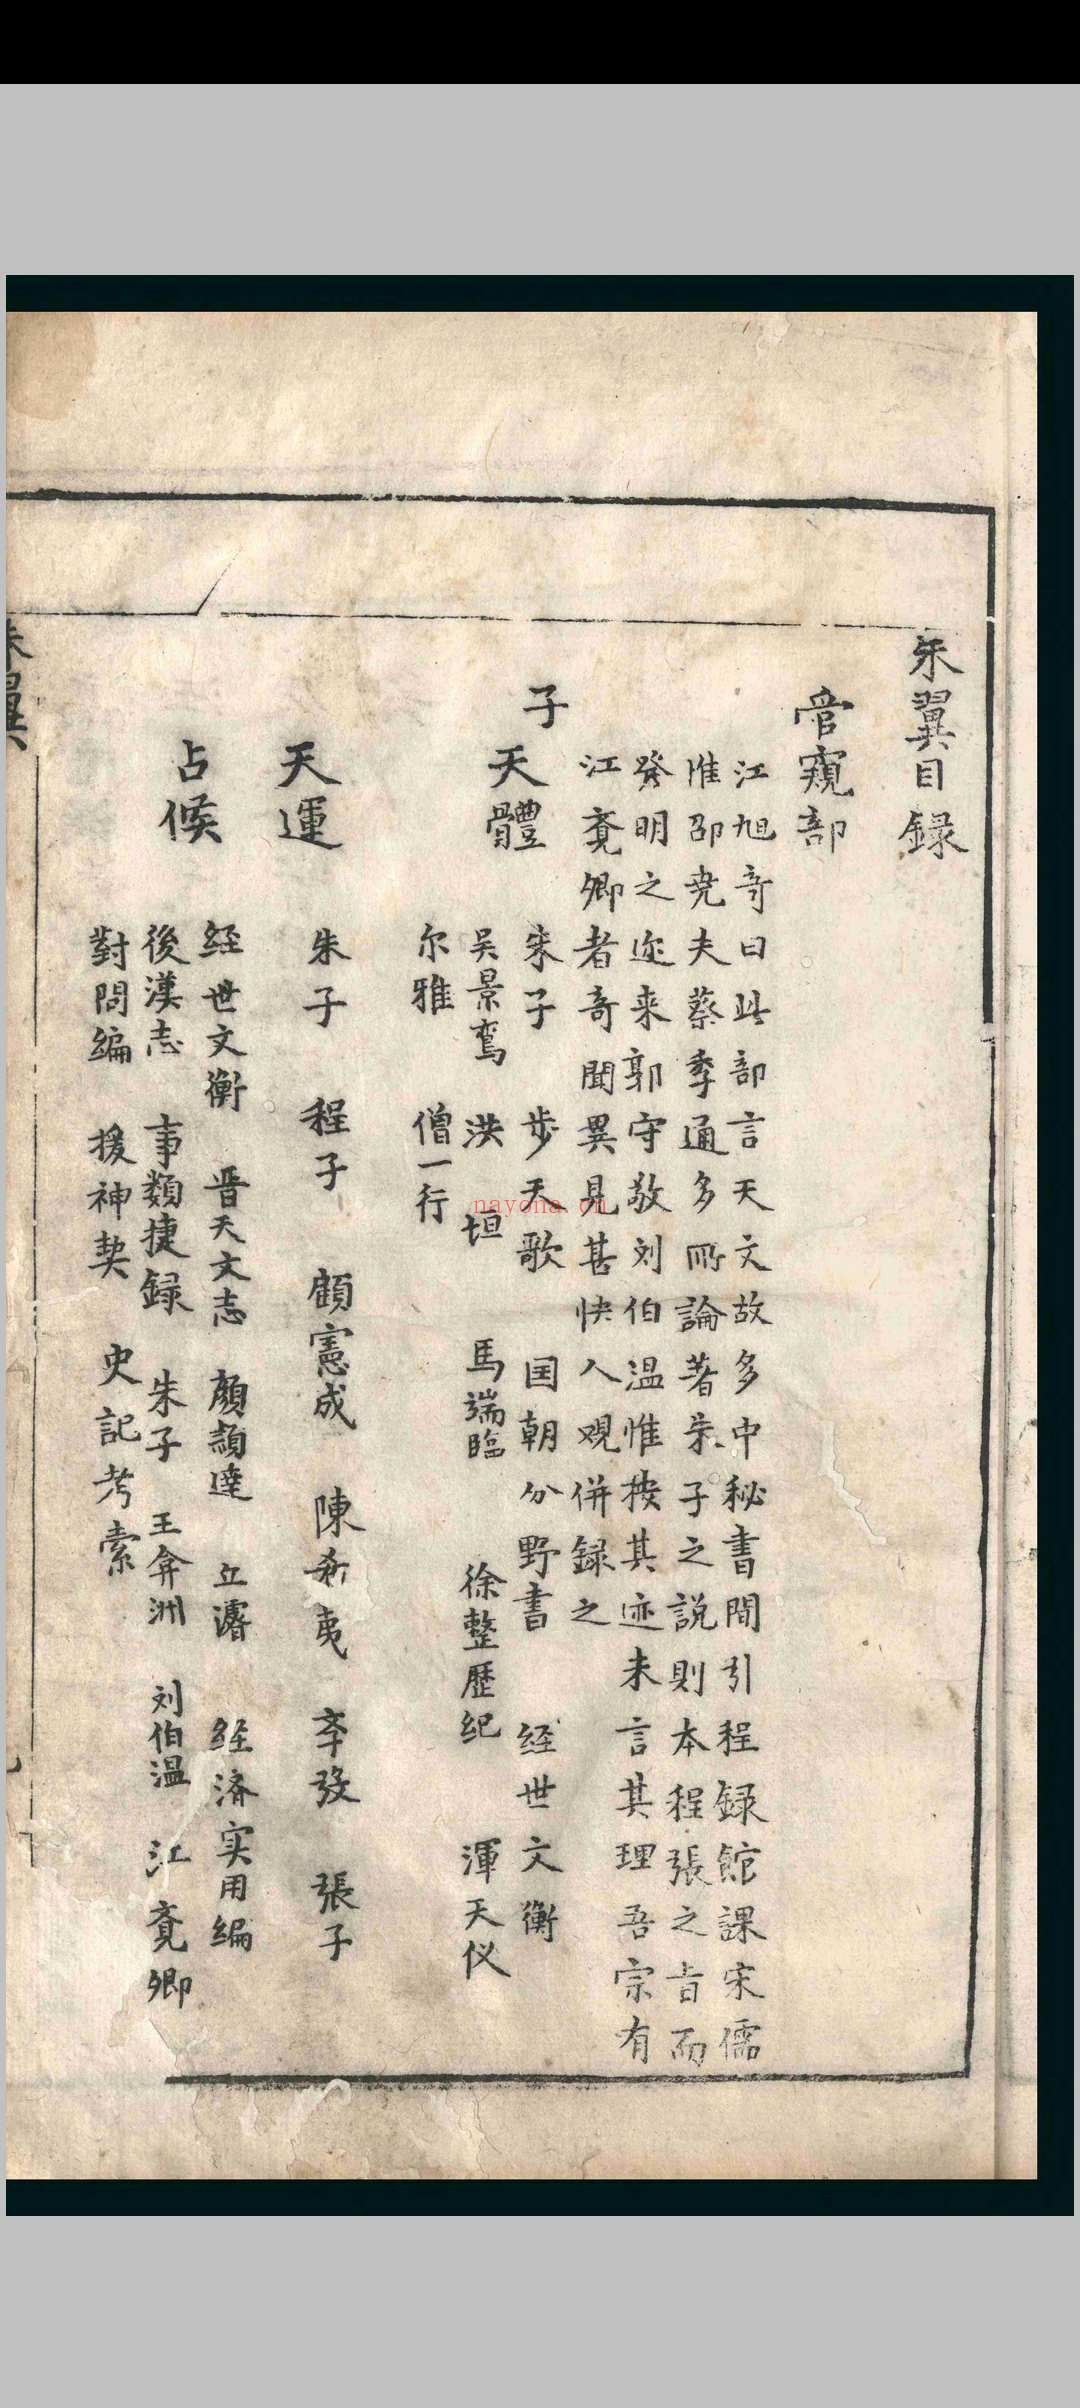 朱翼目録
管窺部
江旭竒曰此部言天文故多中秘書間引程録館課宋儒
惟邵尭夫蔡季通多所論著朱子之説則本程張之旨而
發明之迩来郭守敬刘伯温惟按其迹未言其理吾宗有
江賡卿者竒聞異見甚快人观併録之
子
天體
朱子 步天歌 国朝分野書 经世文衡
吴景鸾 洪垣 馬端臨 徐整歷纪 渾天仪
尔雅 僧一行
天運
朱子 程子 顧憲成 陳希夷 李弢 張子
占候
经世文衡 晋天文志 顏頴達 丘濬 经済实用编
後漢志 事類捷録 朱子 王弇洲 刘伯温 江賡卿
對問编 援神契 史記考索
朱翼
nayona.cn